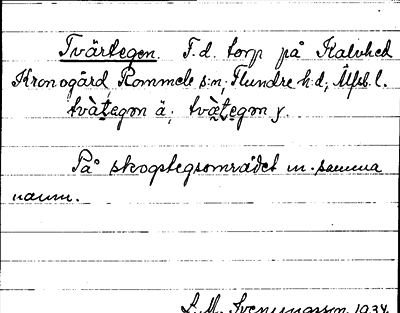 Tvärtegen. F.d. torp på Kalvhed
Kronogård, Rommele s:n, Flundre h:d, Älfsb. l.
tvàtegon ä; tvæ̀tegon y.
På skogstegsområdet m. samma
namn.
1934